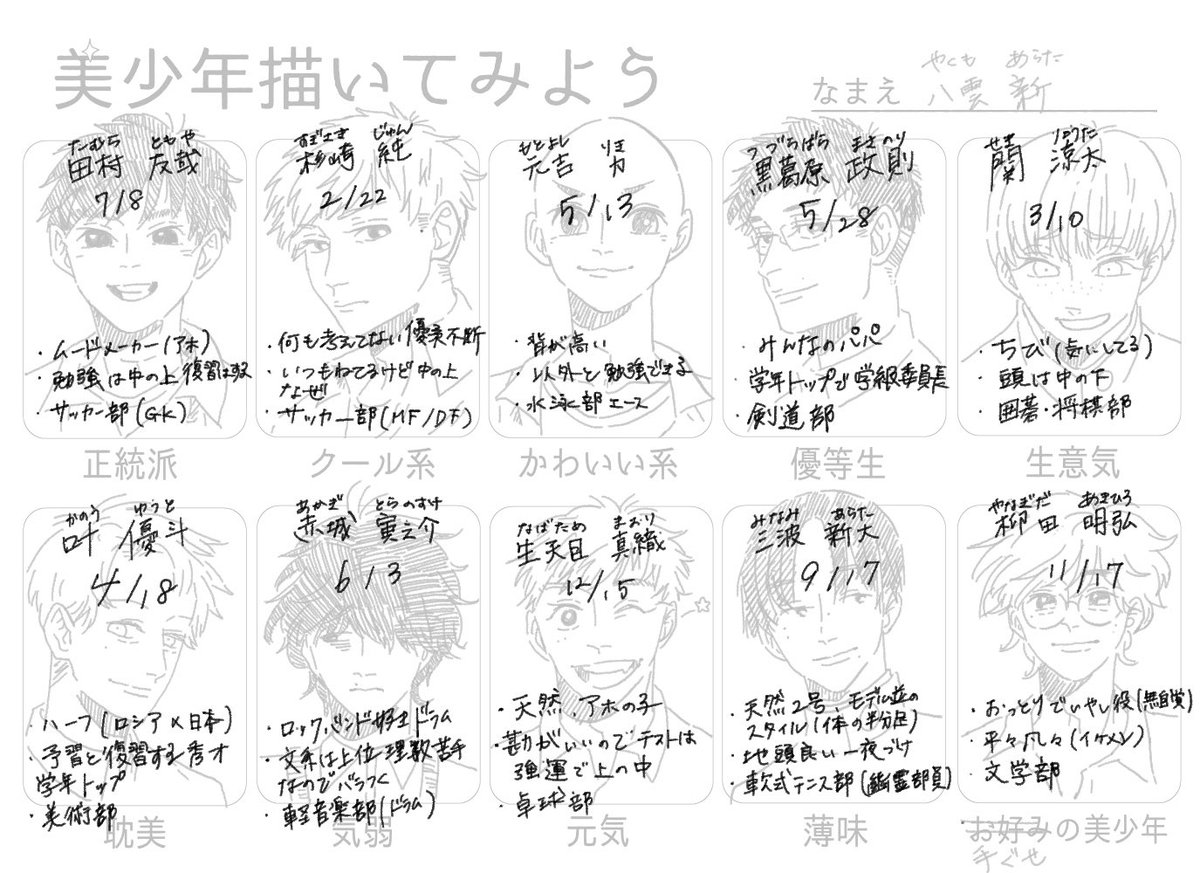 美少年描いてみよう
なまえ 八雲 新
やくも あらた
たむら ともや
田村 友哉
7/8
・ムードメーカー(アホ)
・勉強は中の上 復習は
・サッカー部(GK)
正統派
すぎさき じゅん
杉崎 純
2/22
・何も考えてない優柔不断
・いつもねてるけど中の上
なぜ
・サッカー部(MF/DF)
クール系
もとよし りき
元吉 力
5/13
・背が高い
・以外と勉強できる
・水泳部エース
かわいい系
つづらばら まさのり
黒葛原 政則
5/28
・みんなのパパ
・学年トップで学級委員長
・剣道部
優等生
せき りょうた
関 涼太
3/10
・ちび(気にしてる)
・頭は中の下
・囲碁・将棋部
生意気
かのう ゆうと
叶 優斗
4/18
・ハーフ(ロシア×日本)
・予習と復習する秀才
学年トップ
・美術部
耽美
あかぎ とらのすけ
赤城 寅之介
6/3
・ロックバンド好きドラム
・文系は上位 理数苦手
なのでバラつく
・軽音楽部(ドラム)
気弱
なばため まおり
生天目 真織
12/15
・天然、アホの子
・勘がいいのでテストは
強運で上の中
・卓球部
元気
みなみ あらた
三波 新大
9/17
・天然2号、モデル並の
スタイル(体の半分足)
・地頭良い一夜づけ
・軟式テニス部(幽霊部員)
薄味
やなぎだ あきひろ
柳田 明弘
11/17
・おっとりでいやし役(無自覚)
・平々凡々(イケメン)
・文学部
お好みの美少年
手ぐせ